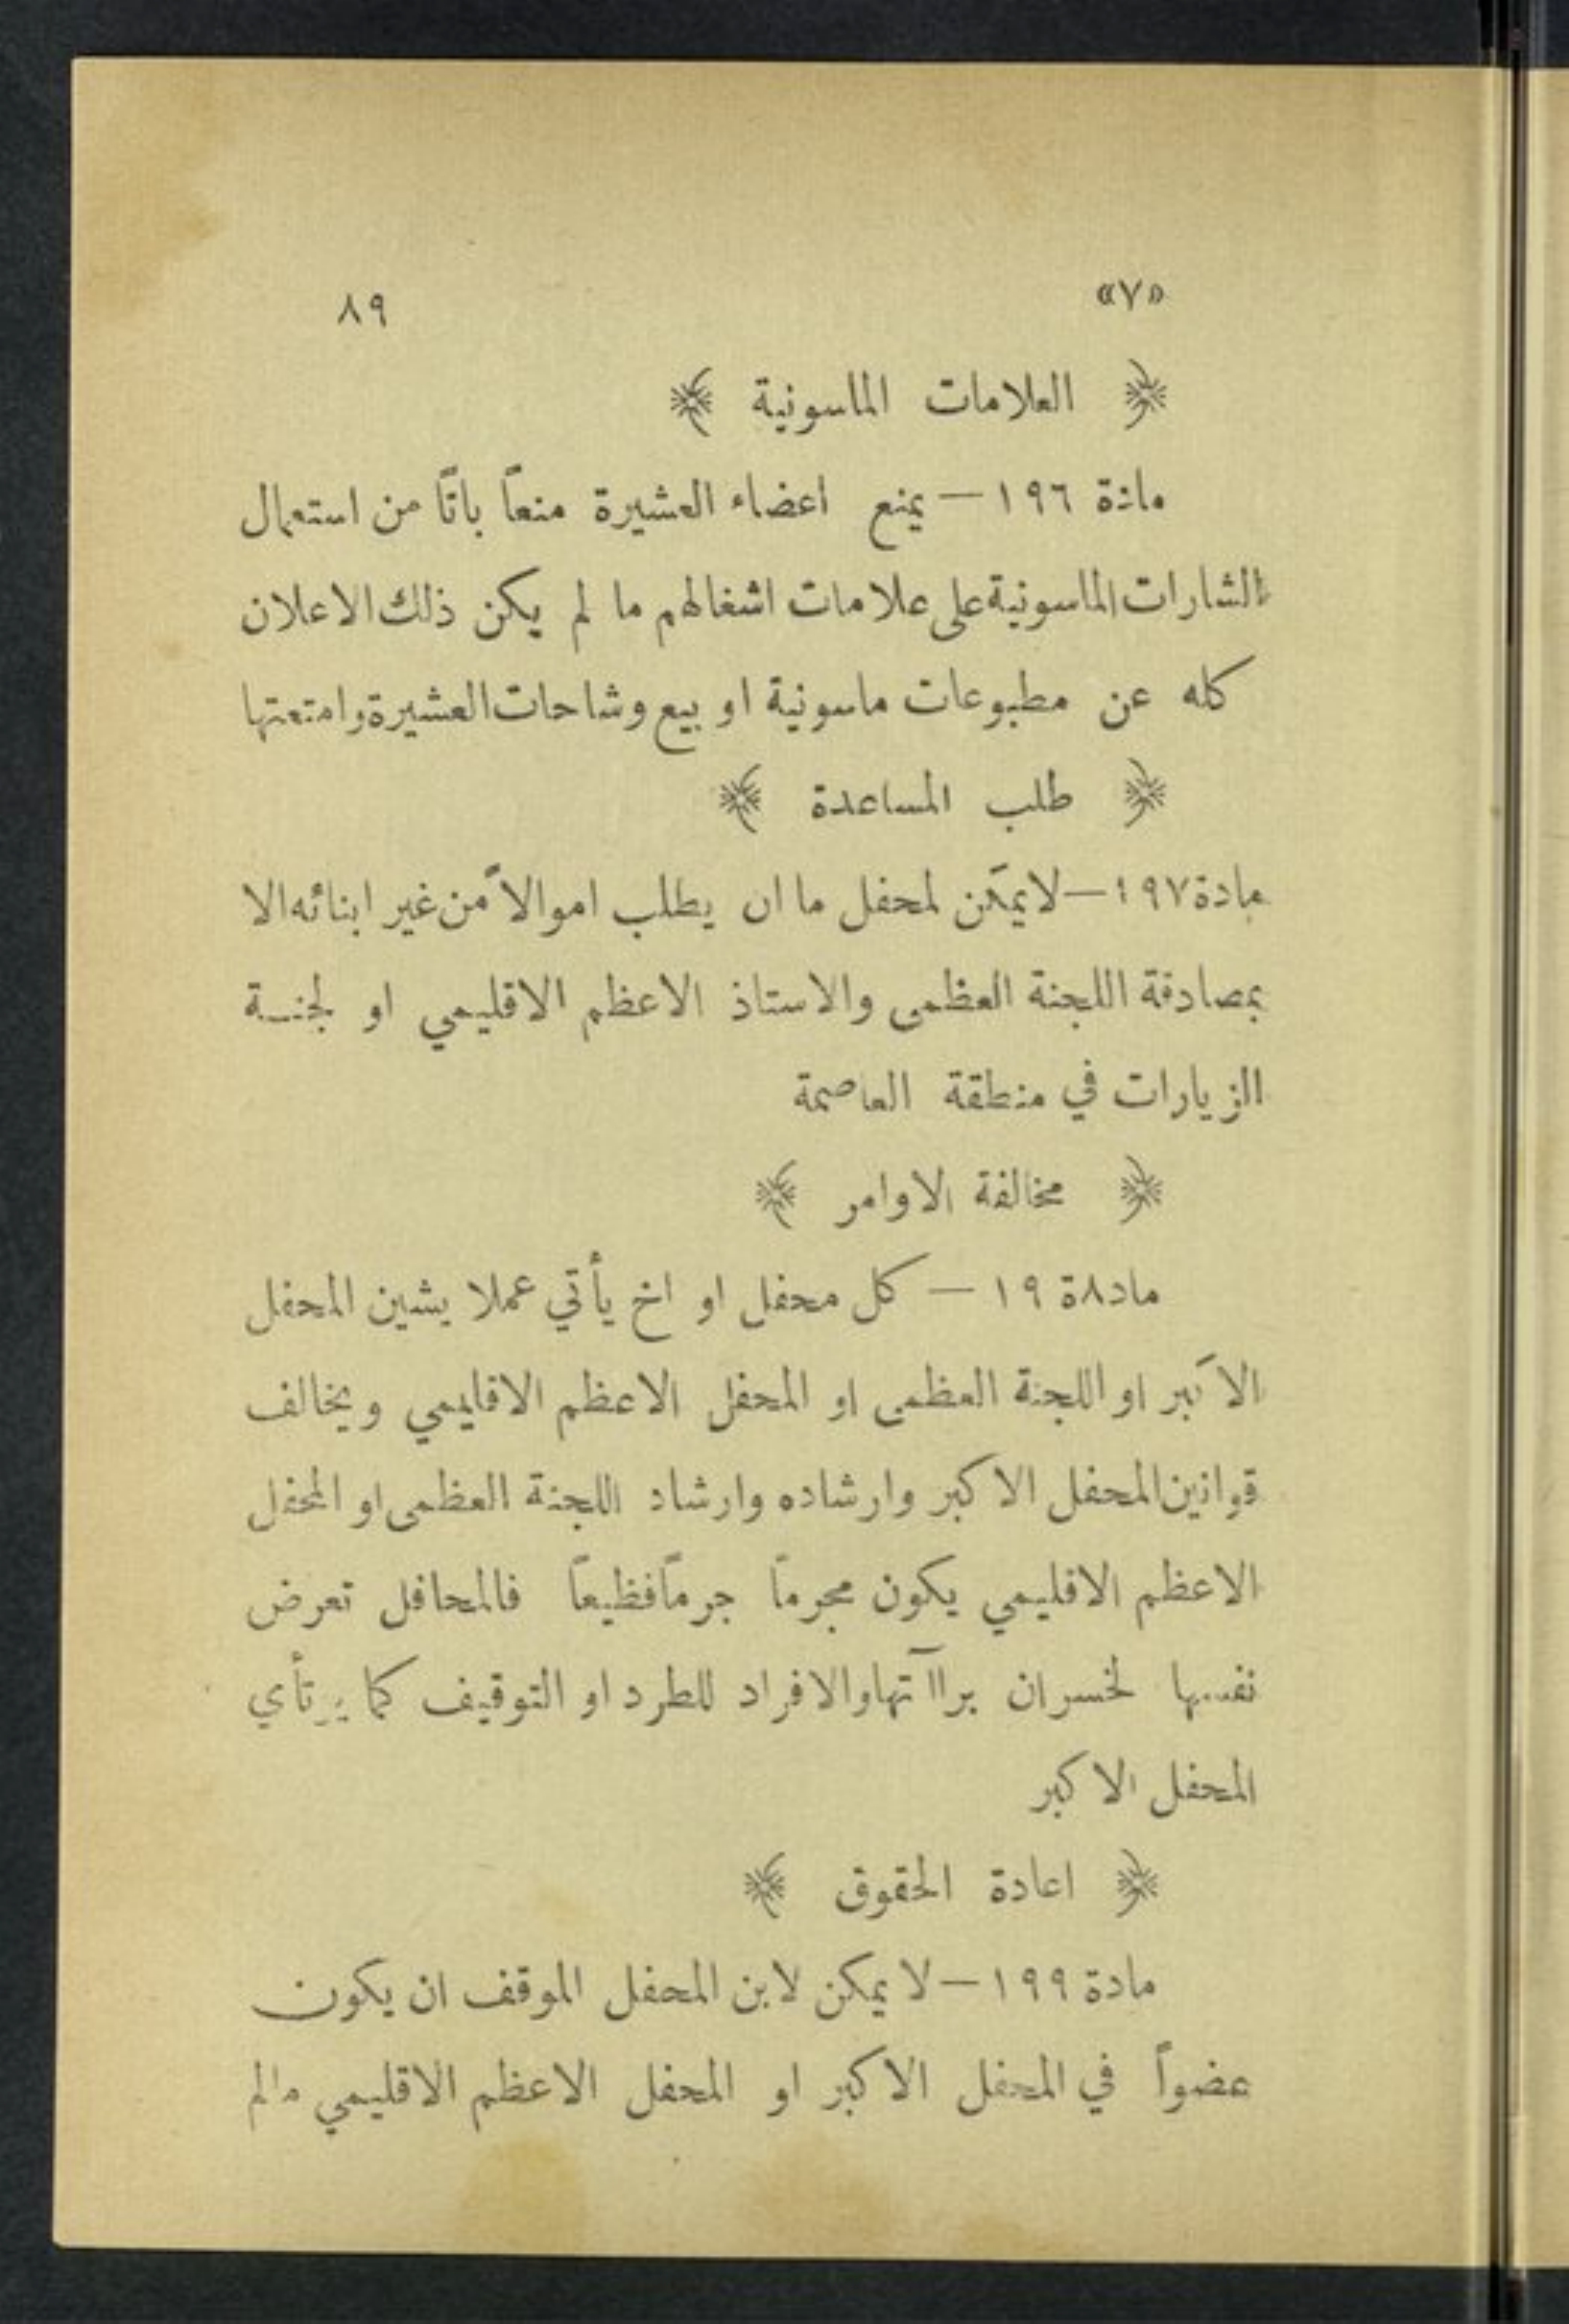 «٧» ٨٩
﴿ العلامات الماسونية ﴾
مادة ١٩٦ — يمنع اعضاء العشيرة منعاً باتاً من استعمال
الشارات الماسونية على علامات اشغالهم ما لم يكن ذلك الاعلان
كله عن مطبوعات ماسونية او بيع وشاحات العشيرة وامتعتها
﴿ طلب المساعدة ﴾
مادة ١٩٧ — لا يمكن لمحفل ما ان يطلب اموالاً من غير ابنائه الا
بمصادقة اللجنة العظمى والاستاذ الاعظم الاقليمي او لجنة
الزيارات في منطقة العاصمة
﴿ مخالفة الاوامر ﴾
ماد٨ة ١٩ — كل محفل او اخ يأتي عملا يشين المحفل
الاكبر او اللجنة العظمى او المحفل الاعظم الاقليمي ويخالف
قوانين المحفل الاكبر وارشاده وارشاد اللجنة العظمى او المحفل
الاعظم الاقليمي يكون مجرماً جرماً فظيعاً فالمحافل تعرض
نفسها لخسران براآتها والافراد للطرد او التوقيف كما يرتأي
المحفل الاكبر
﴿ اعادة الحقوق ﴾
مادة ١٩٩ — لا يمكن لابن المحفل الموقف ان يكون
عضواً في المحفل الاكبر او المحفل الاعظم الاقليمي مالم